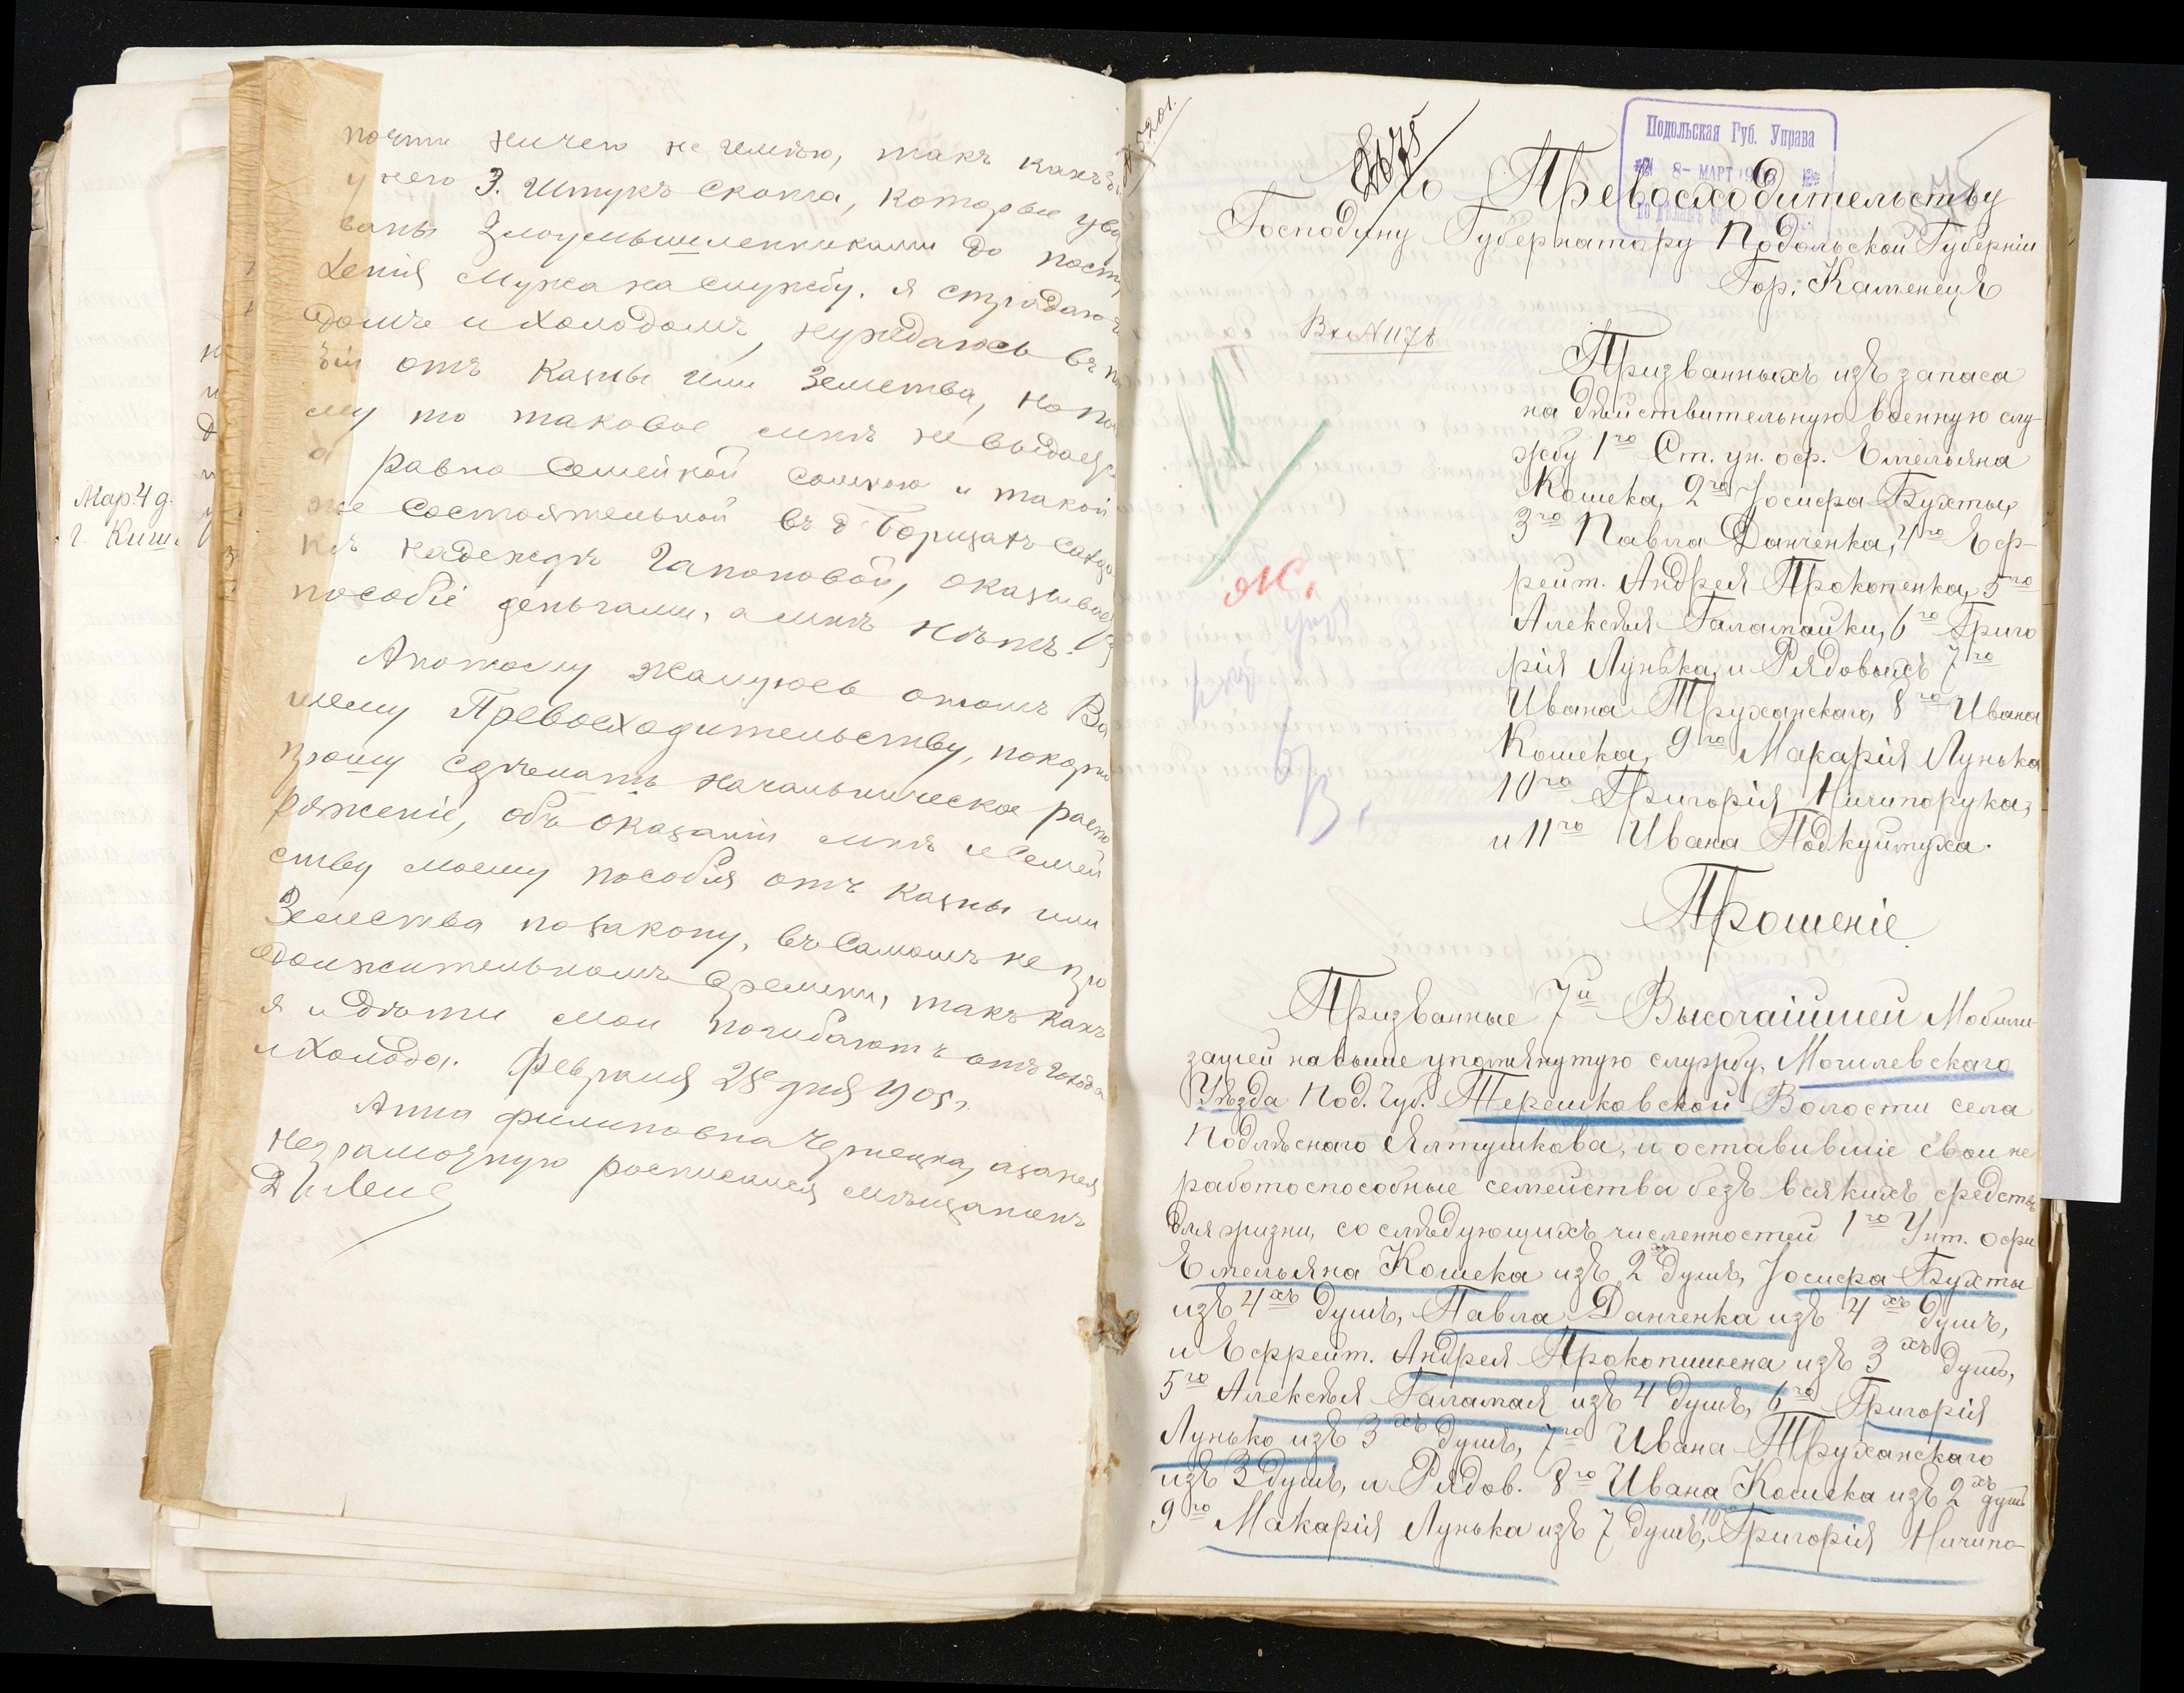 почти ничего не имею, такъ какъ
у него 3. Штукъ скота, которые
ваны Злоумышленниками до посту
ленія Мужа на службу. я страдаю
домъ и холодомъ, нуждаюсь въ
бій отъ Казны или Земства, но по
му то таковое мнѣ не выдается
а равно Семейной солдаткѣ и такой
же состоятельной въ д
кѣ Надеждѣ Гапоновой, оказывает
пособіе деньгами, а мнѣ нѣтъ.
Апотому жалуюсь отомъ Ва
шему Превосходительству, покорно
прошу сдѣлать Начальническое распо
ряженіе, объ оказаніи мнѣ и Семей
ству моему пособія отъ Казны или
Земства позакону, въ Самомъ не про
должительномъ времени, такъ какъ
я и Дѣти мои погибаютъ отъ голода
и Холода. Февраля 28 дня 1905 г.
Анна Филиповна а за нея
неграмотную росписался мѣщанинъ
Мар. 4 д.
г. Киши
5201.
2675
Подольская Губ. Управа
8- МАРТ
Его Превосходительству
Господину Губернатору Подольской Губерніи
Гор. Каменецъ
Вх №1178
Призванныхъ изъ запаса
на дѣйствительную военную слу-
жбу 1го Ст. ун. оф. Емельяна
Кошека, 2го Іосифа Бухты,
3го Павла Данченка, 4го Еф-
рейт. Андрея Прокопенка, 5го
Алексѣя Галатайки, 6го Григо
рія Лунька, и Рядовыхъ 7го
Ивана Труханскаго, 8го Ивана
Кошека, 9го Макарія Лунька
10го Григорія Ничипорука,
и 11го Ивана Подкуймуха.
Прошеніе
Призванные 7й Высочайшей Мобили-
зацей на выше упомянутую службу, Могилевскаго
Уѣзда Под. Губ. Терешковской Волости села
Подлѣснаго Ялтушкова, и оставившіе свои не
работоспособные семейства безъ всякихъ средствъ
для жизни, со слѣдующихъ численностей 1го Унт. офи
Емельяна Кошека изъ 2хъ душъ, Іосифа Бухты
изъ 4хъ душъ, Павла Данченка изъ 4хъ душъ,
и Ефрейт. Андрея Прокопишена изъ 3хъ душъ,
5го Алексѣя Галатая изъ 4 душъ, 6го Григорія
Лунько изъ 3хъ душъ, 7го Ивана Труханскаго
изъ 3 душъ, и Рядов. 8го Ивана Кошека изъ 2хъ душъ
9го Макарія Лунька изъ 7 душъ, 10го Григорія Ничипо-